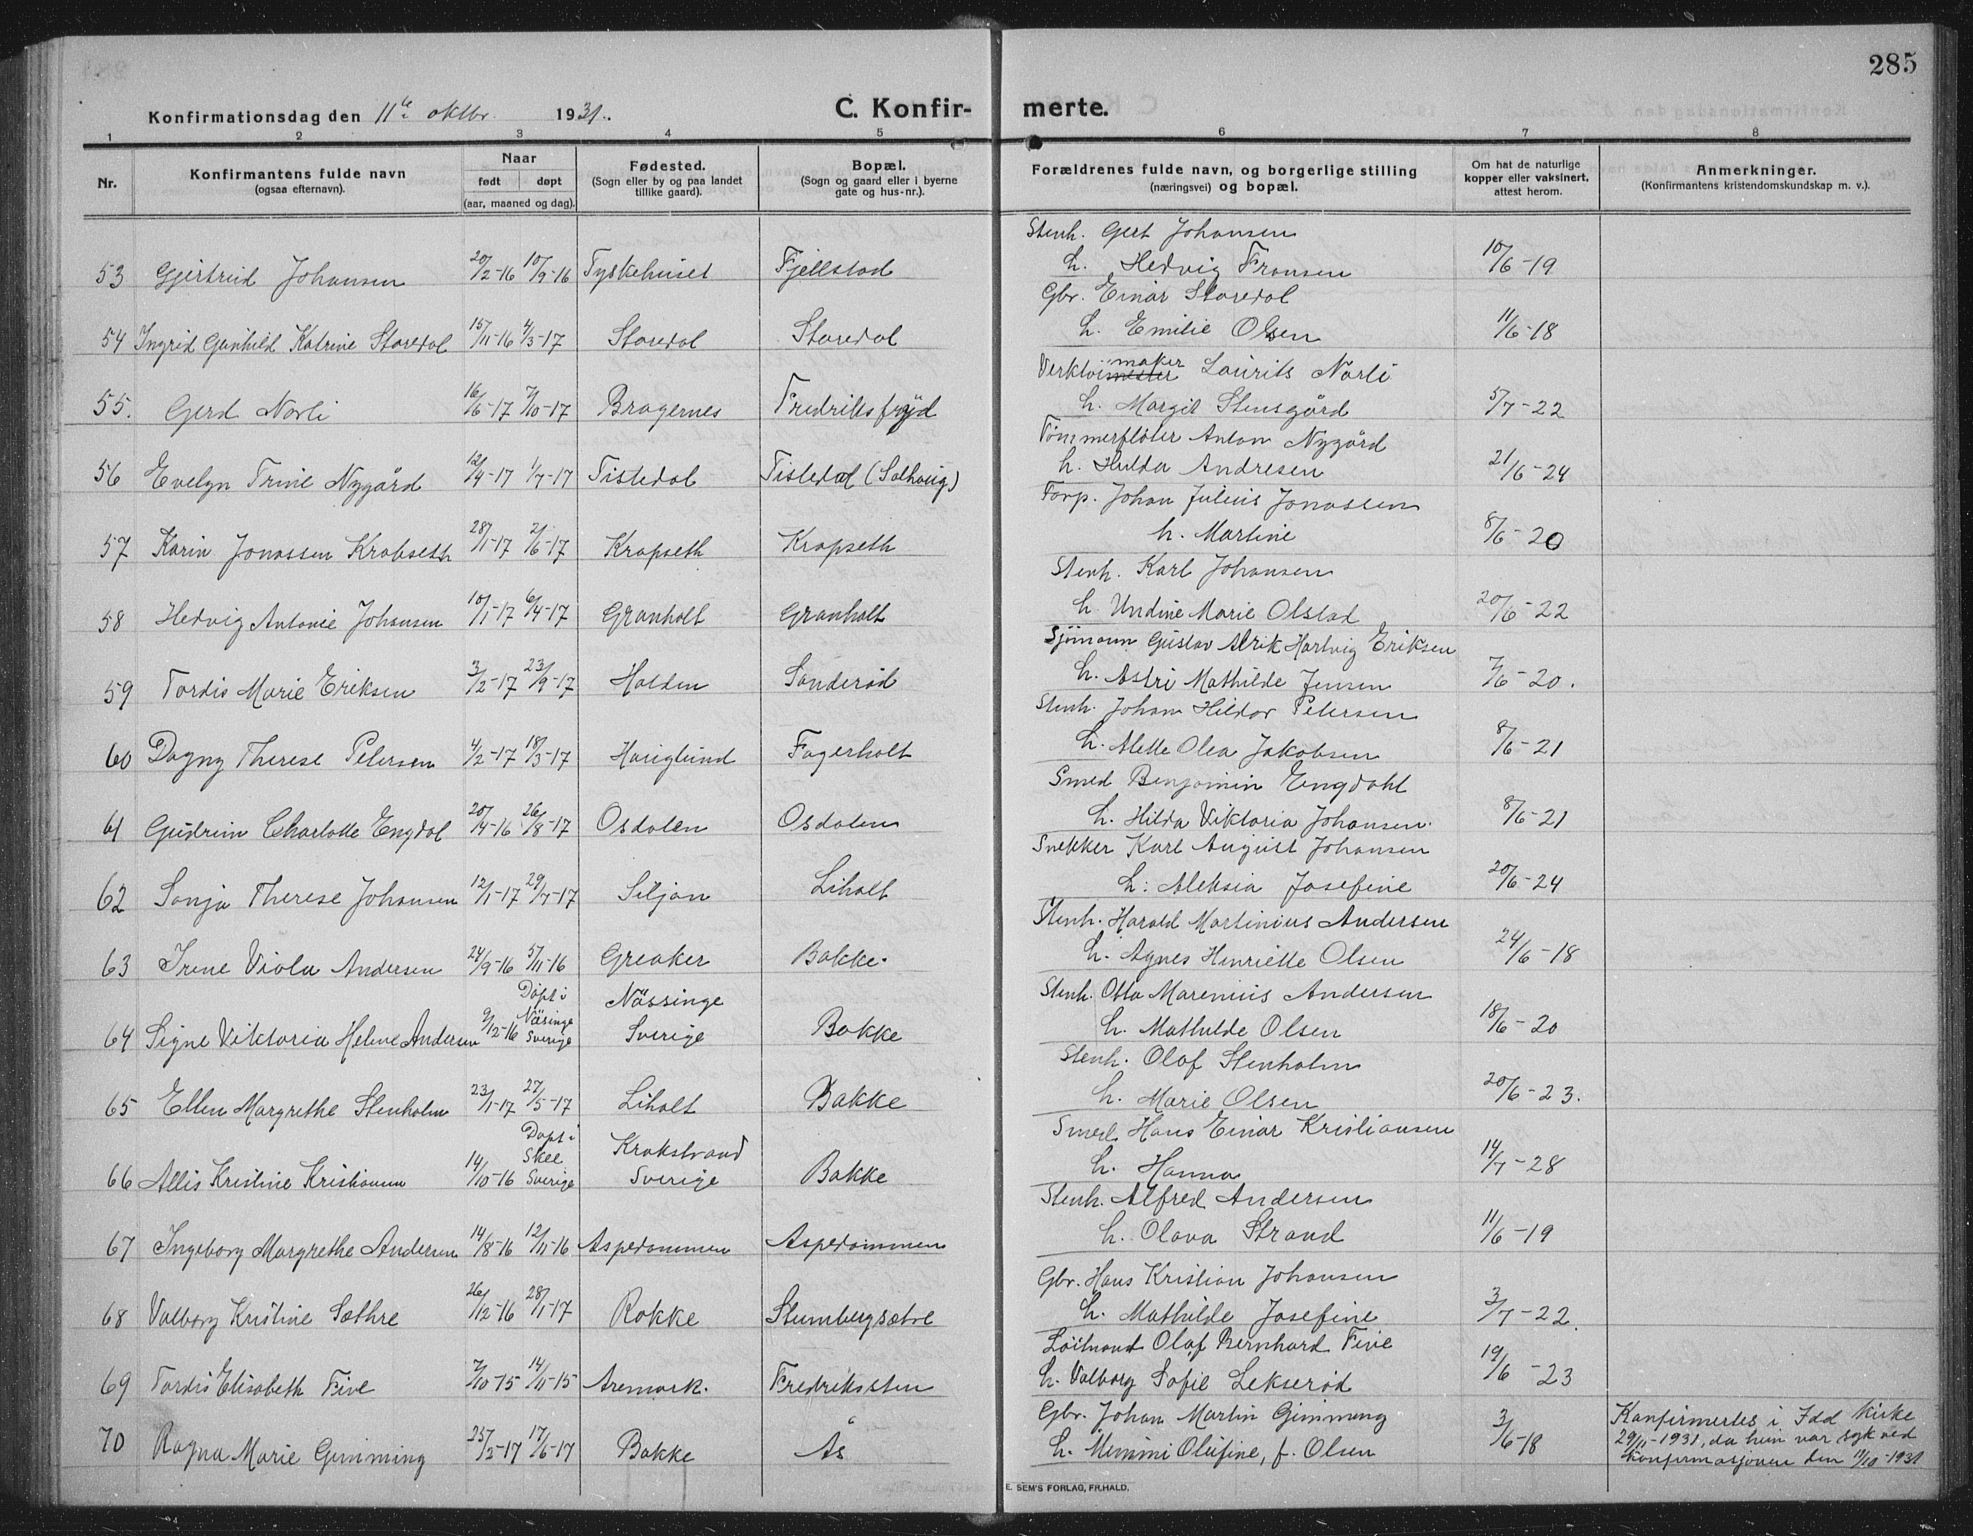 285
Konfirmationsdag den 11te oktbr. 1931. C. Konfir- merte.
1 2 3 4 5 6 7 8
Nr. Konfirmantens fulde navn (ogsaa efternavn). Naar født døpt (aar, maaned og dag). Fødested. (Sogn eller by og paa landet tillike gaard). Bopæl. (Sogn og gaard eller i byerne gate og hus-nr.). Forældrenes fulde navn, og borgerlige stilling (næringsvei) og bopæl. Om hat de naturlige kopper eller vaksinert, attest herom. Anmerkninger. (Konfirmantens kristendomskundskap m. v.).
Stenh. Gert Johansen
53 Gjertrud Johansen 20/2-16 10/9-16 Tyskehuset Fjellstad h. Hedvig Fransen 10/6-19
Gbr. Einar Staredal
54 Ingrid Gunhild Katrine Staredal 15/11-16 4/3-17 Staredal Staredal h. Emilie Olsen 11/6-18
Verktøimaker Laurits Norli
55. Gerd Norli 16/6-17 7/10-17 Bragernes Fredriksfryd h. Margit Stensgård 5/7-22
Tømmerfløter Anton Nygård
56 Evelyn Trine Nygård 12/4-17 1/7-17 Tistedal Tistedal (Solhaug) h. Hulda Andresen 21/6-24
Torp. Johan Julius Jonassen
57 Karin Jonassen Krabseth 28/1-17 2/6-17 Krapseth Krapseth h. Martine 8/6-20
Stenh. Karl Johansen
58 Hedvig Antonie Johansen 10/1-17 6/4-17 Granholt Granholt h. Undine Marie Olstad 20/6-22
Sjømann Gustav Alrik Hartvig Eriksen
59 Tordis Marie Eriksen 3/2-17 23/9-17 Halden Sanderød h. Astri Mathilde Jensen 7/6-20.
Stenh. Johan Hildor Petersen
60 Dagny Therese Petersen 4/2-17 18/3-17 Hauglund Fagerholt h. Mette Olea Jakobsen 8/6-21
Smed Benjamin Engdahl
61 Gudrun Charlotte Engdal 20/4-16 26/8-17 Osdalen Osdalen h. Hilda Viktoria Johansen. 8/6-21
Snekker Karl August Johansen
62 Sonja Therese Johansen 12/1-17 29/7-17 Siljan Liholt h: Aleksia Josefine 20/6-24
Stenh. Harald Martinius Andersen
63 Irene Viola Andersen 24/9-16 5/11-16 Greaker Bakke. h. Agnes Henriette Olsen 24/6-18
Døpt i Nässinge Stenh. Otto Marenius Andersen
64 Signe Viktoria Helene Andersen 9/12-16 Näsinge Sverige Sverige Bakke h. Mathilde Olsen 18/6-20
Stenh. Olaf Stenholm
65 Ellen Margrethe Stenholm 23/1-17 27/5-17 Liholt Bakke h. Marie Olsen 20/6-23.
Døpt i Skee Krokstrand Smed Hans Einar Kristiansen
66 Allis Kristine Kristiansen 14/10-16 Sverige Sverige Bakke h. Hanna 14/7-28
Stenh. Alfred Andersen
67 Ingeborg Margrethe Andersen 14/8-16 12/11-16 Aspedammen Aspedammen h. Olava Strand 11/6-19
Gbr. Hans Kristian Johansen
68 Valborg Kristine Sæthre 26/12-16 28/1-17 Rokke Stumbergsætre h. Mathilde Josefine 3/7-22.
Løitnand Olaf Bernhard Five
69 Tordis Elisabeth Five 7/10-15 14/11-15 Aremark. Fredriksten h. Valborg Sofie Lekserød 19/6-23
Gbr. Johan Martin Gimming Konfirmertes i Idd kirke
70 Ragna Marie Gimming 25/2-17 17/6-17 Bakke Ås h. Mimmi Olufine, f. Olsen 3/6-18 29/11-1931, da hun var syk ved
konfirmasjonen den 11/10-1931
E. SEM'S FORLAG, FR.HALD.